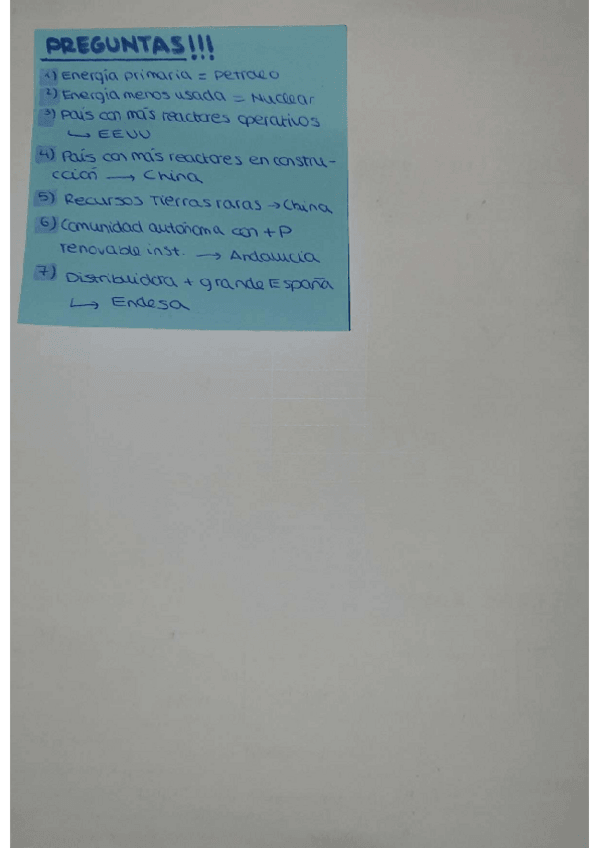 PREGUNTAS!!!
1) Energía primaria = Petroleo
2) Energia menos usada = Nuclear
3) País con más reactores operativos
↳ EEUU
4) País con más reactores en constru-
cción → China
5) Recursos Tierras raras → China
6) Comunidad autónoma con + P
renovable inst. → Andalucía
7) Distribuidora + grande España
↳ Endesa